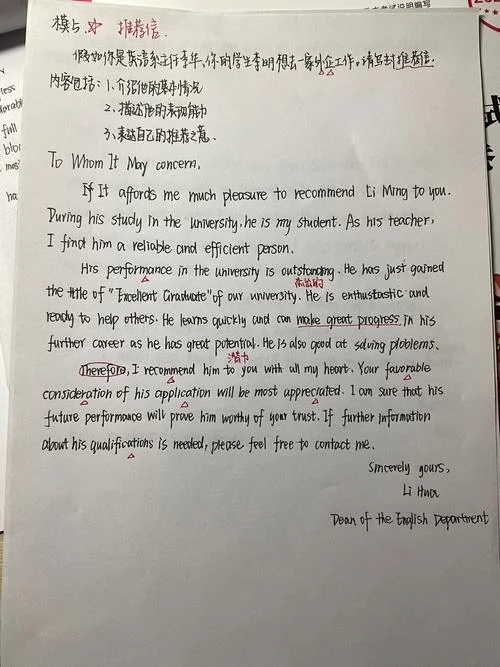 模与 推荐信
假如你是英语系主任李华,你的学生李明想去一家外企工作,请写封推荐信.
内容包括:1.介绍他的基本情况
2.描述他的表现能力
3.表达自己的推荐之意.
To Whom It May concern,
If It affords me much pleasure to recommend Li Ming to you.
During his study in the university, he is my student. As his teacher,
I find him a reliable and efficient person.
His performance in the university is outstanding. He has just gained
杰出的
the title of "Excellent Graduate" of our university. He is enthustastic and
ready to help others. He learns quickly and can make great progress in his
further career as he has great potential. He is also good at solving ploblems.
潜力
Therefore, I recommend him to you with all my heart. Your favorable
consideration of his application will be most appreciated. I am sure that his
future performance will prove him worthy of your trust. If further information
about his qualifications is needed, please feel free to contact me.
Sincerely yours,
Li Hua
Dean of the English Department